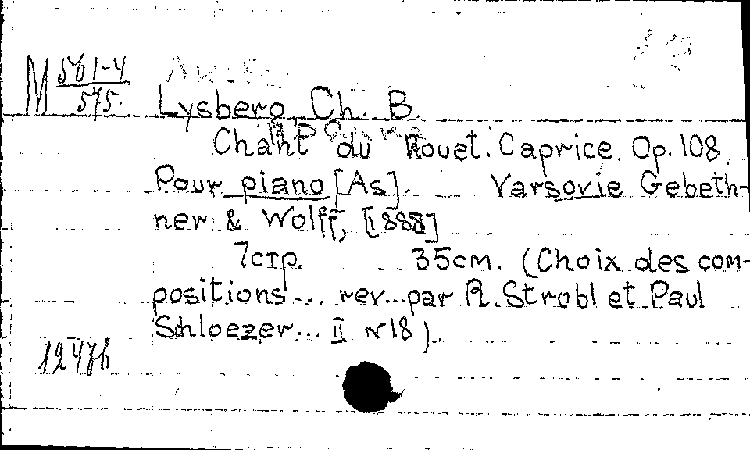 M 561-4
575.
Lysberg Ch. B.
Chant du Rouet. Caprice. Op. 108.
Pour piano [As]. Varsovie Gebeth-
ner & Wolff, [1888]
7стр. 35cm. (Choix des com-
positions... rev... par R. Strobl et Paul
Schloezer... II N 18)